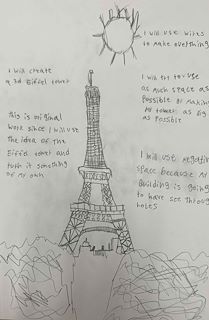 I will use wires
to make everything
I will create
a 3d Eiffel tower
I will try to use
as much space as
possible by making
my tower as big
as possible
this is original
work since I will use
the idea of the
Eiffel tower and
turn it something
of my own
I will use negative
space because my
building is going
to have see through
holes